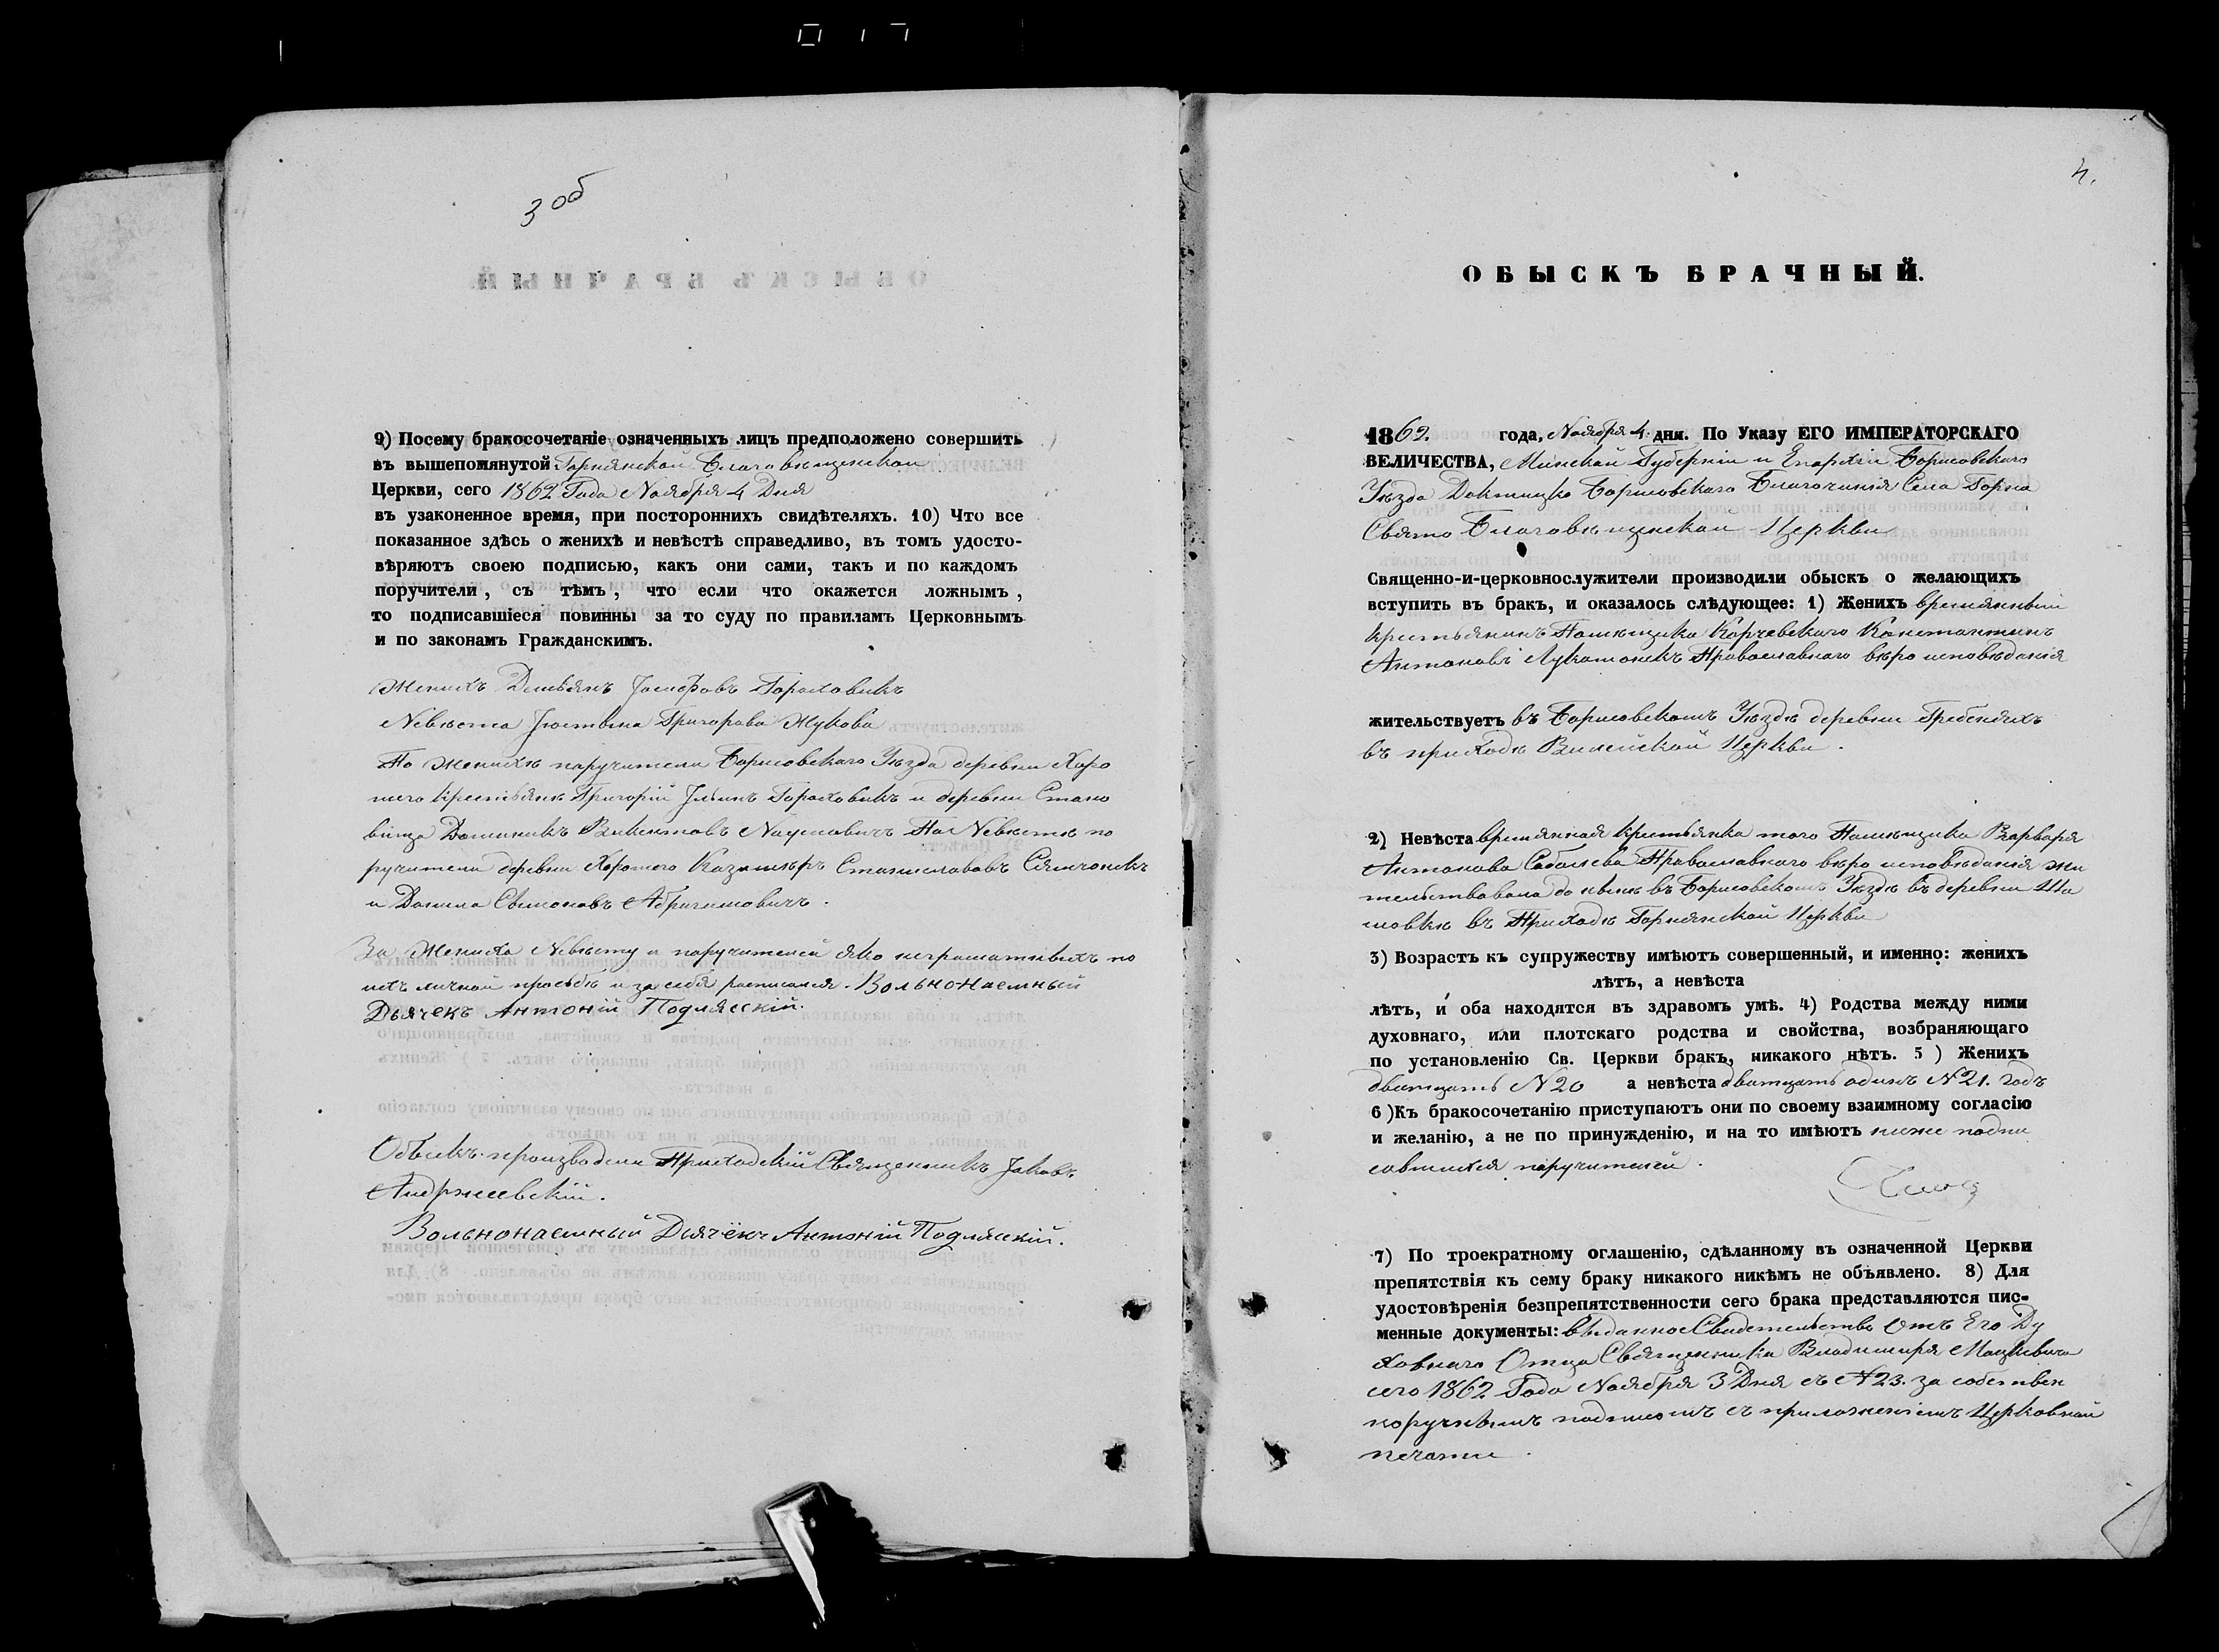 3 об
9) Посему бракосочетаніе означенныхъ лицъ предположено совершить
въ вышепомянутой Горнянской Благовѣщенской
Церкви, сего 1862 Года Ноября 4 Дня
въ узаконенное время, при постороннихъ свидѣтеляхъ. 10) Что все
показанное здѣсь о женихѣ и невѣстѣ справедливо, въ томъ удосто-
вѣряютъ своею подписью, какъ они сами, такъ и по каждомъ
поручители, съ тѣмъ, что если что окажется ложнымъ,
то подписавшіеся повинны за то суду по правиламъ Церковнымъ
и по законамъ Гражданскимъ.
Женихъ Демьянъ Іосифовъ Гораховикъ
Невѣста Іюстына Григорова Жукова
По женихѣ поручители Борисовскаго Уѣзда деревни Хоро
шего Крестьяне Григорій Ильинъ Гораховикъ и деревни Стано
вища Доминикъ Викентовъ Наумовичъ По Невѣстѣ по
ручители деревни Хорошего Казимиръ Станиславовъ
и Данила Сымоновъ Абрагимовичъ.
За Жениха Невѣсту и поручителей яко неграматныхъ по
ихъ личной просьбѣ и за себя росписался. Вольнонаемный
Дьячекъ Антоній Подляскій.
Обыскъ производили Приходскій Священникъ Іаковъ
Андржеевскій.
Вольнонаемный Дьячёкъ Антоній Подляскій.
4.
ОБЫСКЪ БРАЧНЫЙ.
1862. года, Ноября 4 дня. По Указу ЕГО ИМПЕРАТОРСКАГО
ВЕЛИЧЕСТВА, Минской Губерніи и Епархіи Борисовскаго
Уѣзда Докшицко Борисовскаго Благочинія Села Горна
Свято Благовѣщенской Церкви
Священно-и-церковнослужители производили обыскъ о желающихъ
вступить въ бракъ, и оказалось слѣдующее: 1) Женихъ времянный
крестьянинъ Помѣщика Корчевскаго Константинъ
Антоновъ Лукатонекъ Православнаго вѣро исповѣданія
жительствуетъ въ Борисовскомъ Уѣздѣ деревни Гребеняхъ
въ приходѣ Вилейской Церкви.
2) Невѣста времянная крестьянка того Помѣщика Варваря
Антонова Саболева Православнаго вѣро исповѣданія жи
тельствовала до нынѣ въ Борисовскомъ Уѣздѣ въ деревни Ша
мовкѣ въ Приходѣ Горнянской Церкви
3) Возрастъ къ супружеству имѣютъ совершенный, и именно: женихъ
лѣтъ, а невѣста
лѣтъ, и оба находятся въ здравомъ умѣ. 4) Родства между ними
духовнаго, или плотскаго родства и свойства, возбраняющаго
по установленію Св. Церкви бракъ, никакого нѣтъ. 5) Женихъ
дватцать N 20 а невѣста дватцать одинъ N 21. годъ
6) Къ бракосочетанію приступаютъ они по своему взаимному согласію
и желанію, а не по принужденію, и на то имѣютъ ниже подпи
савшихся поручителей.
7) По троекратному оглашенію, сдѣланному въ означенной Церкви
препятствія къ сему браку никакого никѣмъ не объявлено. 8) Для
удостовѣренія безпрепятственности сего брака представляются пис-
менные документы: выданное Свидетельство Отъ Его Ду
ховнаго Отца Священника Владимиря Мацкевича
сего 1862 Года Ноября 3 Дня съ N 23. за собствен
норучнымъ подписомъ съ приложеніемъ Церковной
печати.